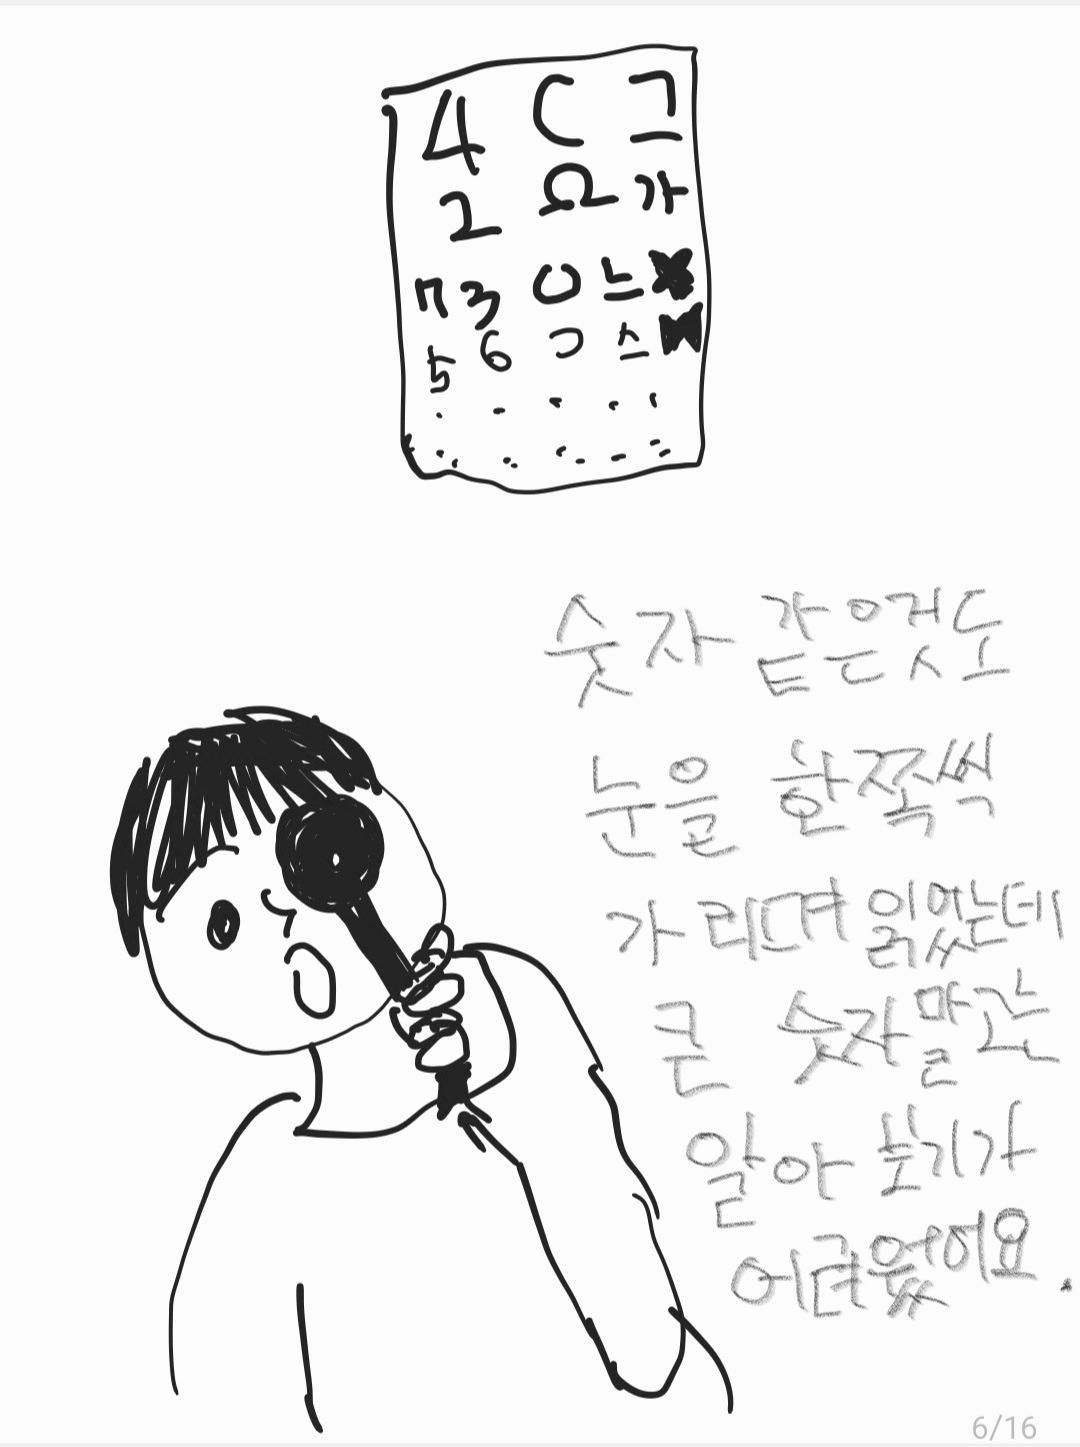 4 C 그
2 Ω 가
7 3 O 느
5 6 스
숫자 같은것도
눈을 한쪽씩
가리며 읽었는데
큰 숫자말곤
알아 보기가
어려웠어요.
6/16